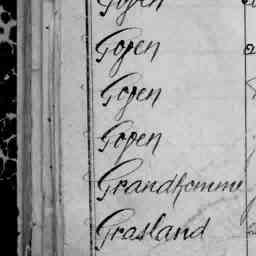 Gogen
Gogen
Gogen
Gogen
Grandhomme
Grasland